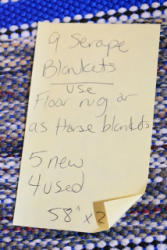 9 Serape
Blankets
USE
Floor rug or
as Horse blankets
5 new
4 used
58" x 2